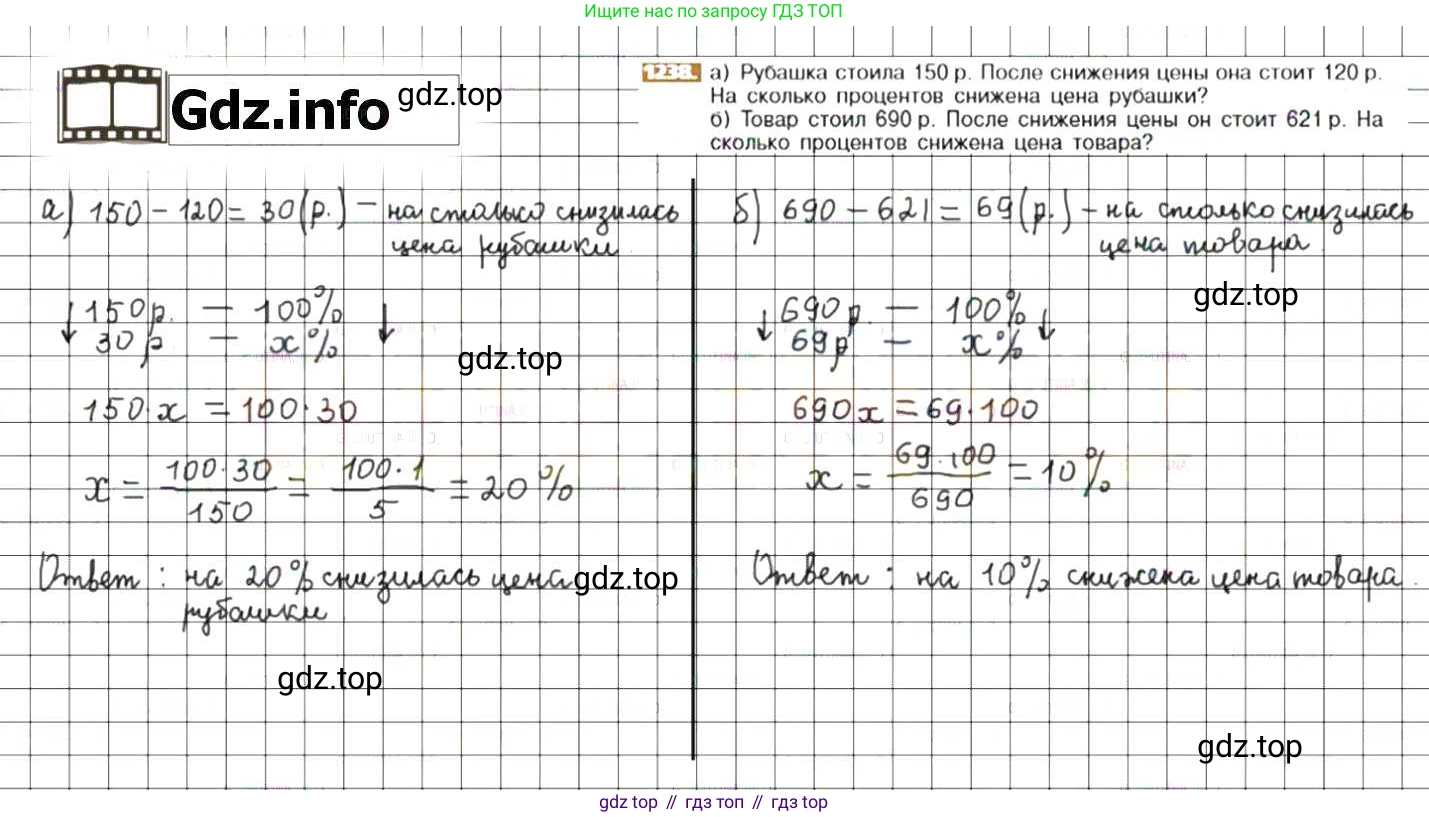 Ищите нас по запросу ГДЗ ТОП
Gdz.info
gdz.top
1238. а) Рубашка стоила 150 р. После снижения цены она стоит 120 р.
На сколько процентов снижена цена рубашки?
б) Товар стоил 690 р. После снижения цены он стоит 621 р. На
сколько процентов снижена цена товара?
а) 150 - 120 = 30 (р.) - на столько снизилась
цена рубашки
↓ 150 р. - 100% ↓
30 р - x%
gdz.top
150·x = 100·30
x = 100·30/150 = 100·1/5 = 20%
Ответ: на 20% снизилась цена
рубашки
gdz.top
gdz.top
б) 690 - 621 = 69 (р.) - на столько снизилась
цена товара
gdz.top
↓ 690 р. - 100% ↓
69 р - x%
690x = 69·100
x = 69·100/690 = 10%
Ответ: на 10% снижена цена товара.
gdz.top
gdz top // гдз топ // gdz top